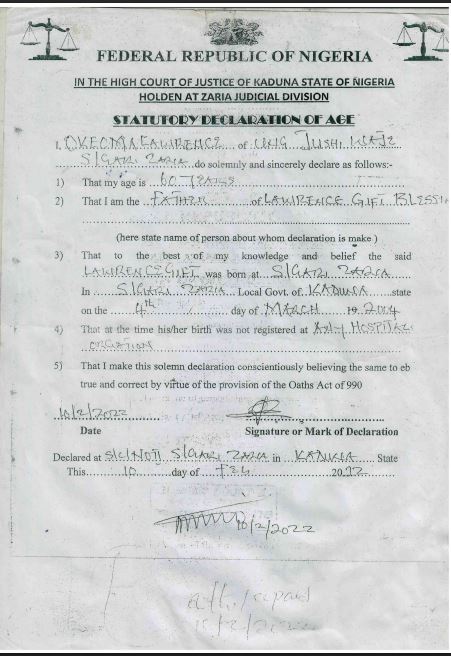 FEDERAL REPUBLIC OF NIGERIA
IN THE HIGH COURT OF JUSTICE OF KADUNA STATE OF NIGERIA
HOLDEN AT ZARIA JUDICIAL DIVISION
STATUTORY DECLARATION OF AGE
I, OKEOMA LAWRENCE of UNG JUSHI WAJE
S/GARI ZARIA do solemnly and sincerely declare as follows:-
1) That my age is 60 YEARS
2) That I am the FATHER of LAWRENCE GIFT BLESSIN
(here state name of person about whom declaration is make )
3) That to the best of my knowledge and belief the said
LAWRENCE GIFT was born at S/GARI ZARIA
In S/GARI ZARIA Local Govt. of KADUNA state
on the 4th day of MARCH 2004
4) That at the time his/her birth was not registered at Any HOSPITAL
5) That I make this solemn declaration conscientiously believing the same to eb
true and correct by virtue of the provision of the Oaths Act of 990
10/2/2022
Date Signature or Mark of Declaration
Declared at S/GARI ZARIA in KADUNA State
This 10 day of FEB 20
10/2/2022